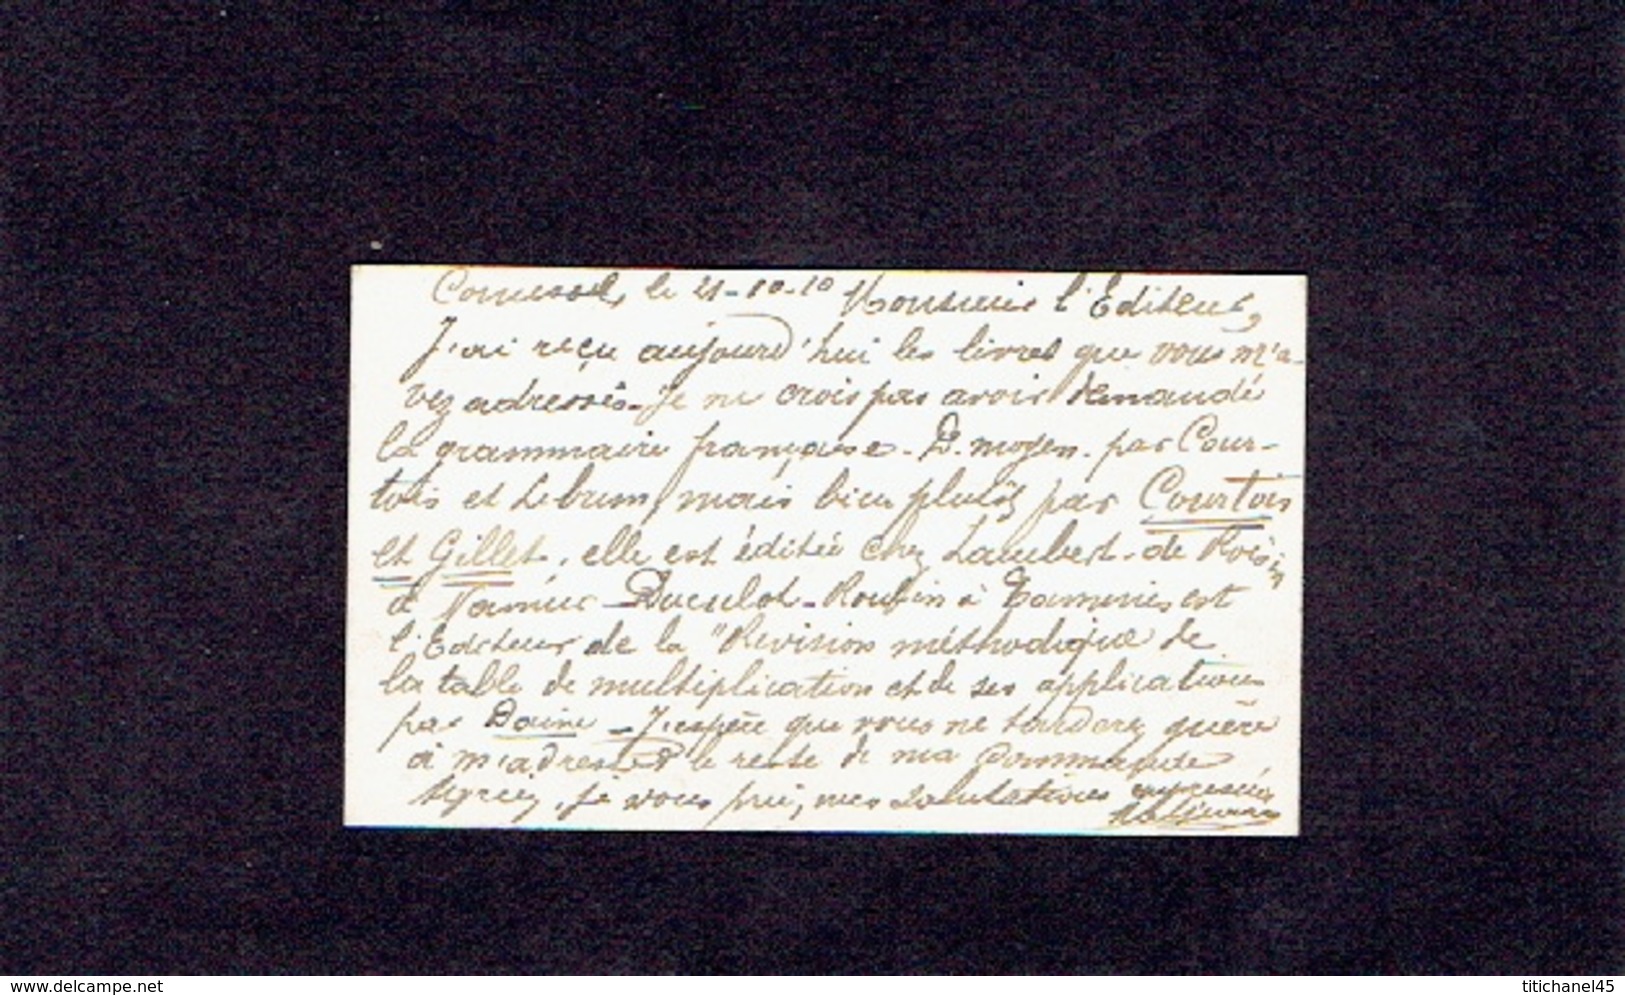 le 21-10-10 Monsieur l'Editeur,
J'ai reçu aujourd'hui les livres que vous m'a-
vez adressés. Je ne crois pas avoir demandé
la grammaire française. D. moyen. par Cour-
tois et Lebrun, mais bien plutôt par Courtois
et Gillet, elle est éditée chez Lambert-de Roisin
à Namur - Duculot-Roulin à Tamines est
l'Editeur de la "Revision méthodique de
la table de multiplication et de ses applications
par - J'espère que vous ne tarderez guère
à m'adresser le reste de ma commande
Agréez, je vous prie, mes salutations empressées
delcampe.net
titichanel45